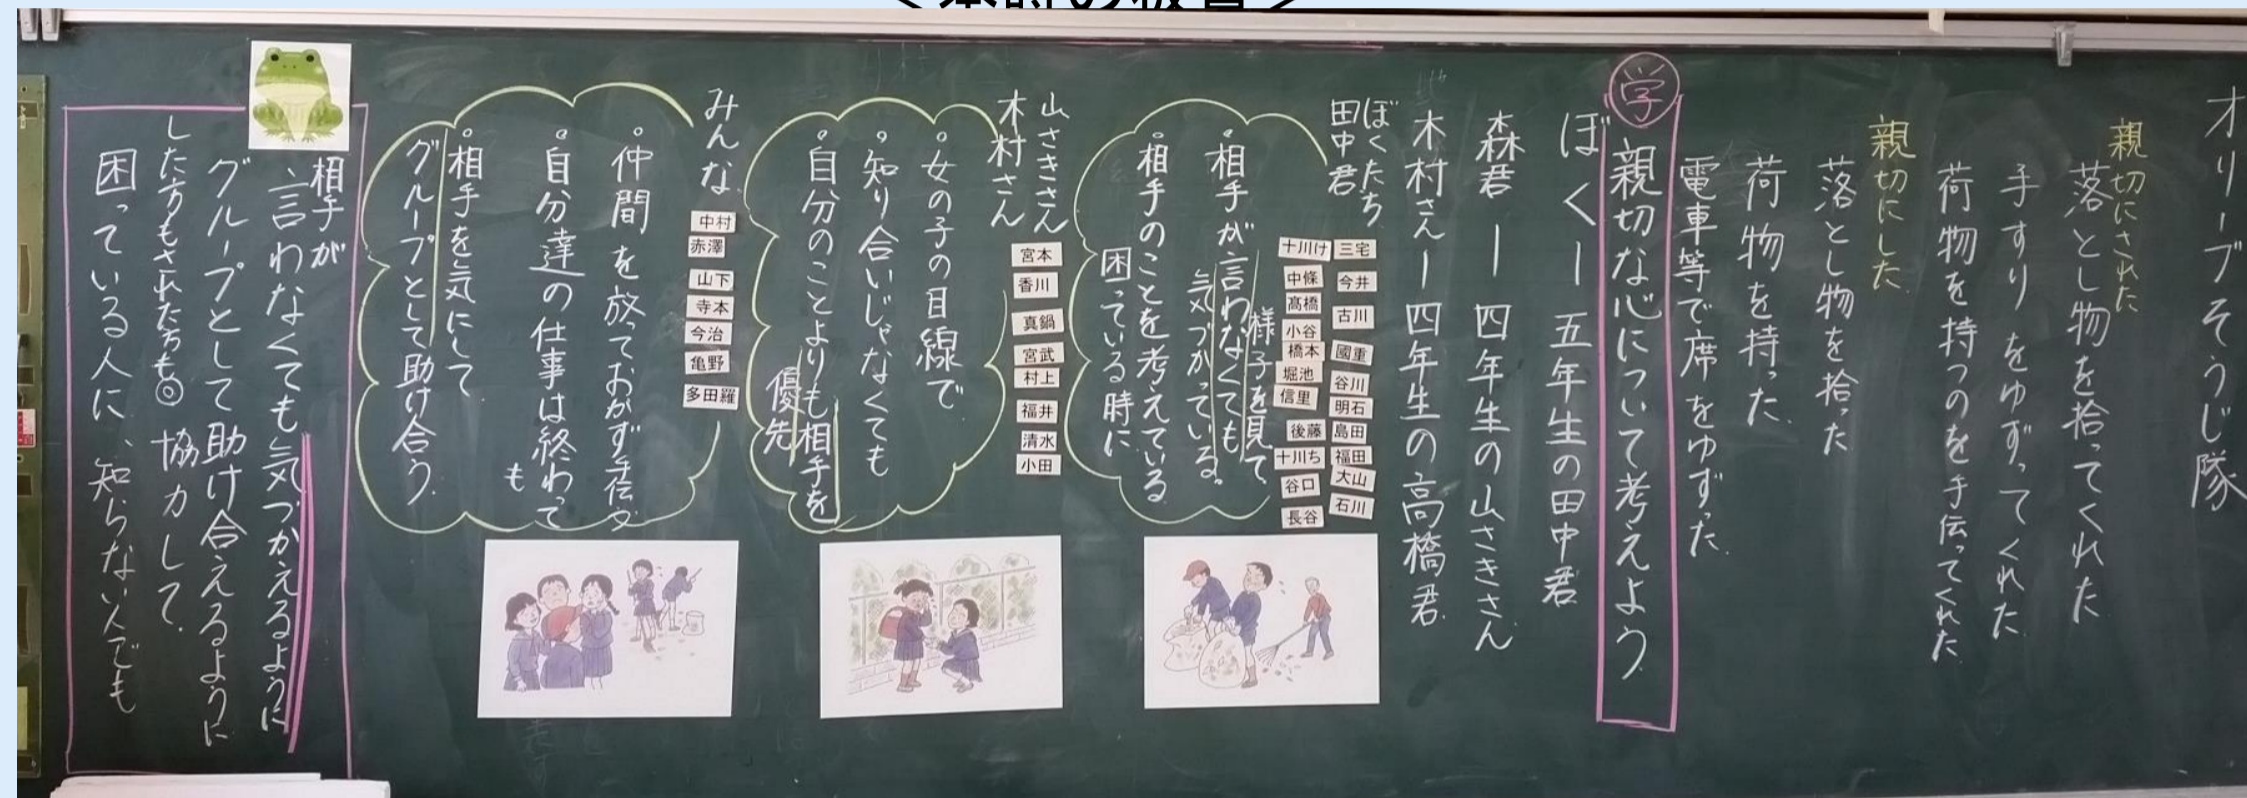 ＜本時の板書＞
オリーブそうじ隊
親切にされた
落とし物を拾ってくれた
手すりをゆずってくれた
荷物を持つのを手伝ってくれた
親切にした
落とし物を拾った
荷物を持った
電車等で席をゆずった
学
親切な心について考えよう
ぼくー五年生の田中君
森君ー四年生の山さきさん
木村さんー四年生の高橋君
ぼくたち
田中君
三宅
今井
古川
國重
谷川
明石
島田
福田
大山
石川
十川け
中條
髙橋
小谷
橋本
堀池
信里
後藤
十川ち
谷口
長谷
様子を見て
相手が言わなくても
気づかっている。
相手のことを考えている
困っている時に
山さきさん
木村さん
宮本
香川
真鍋
宮武
村上
福井
清水
小田
女の子の目線で
知り合いじゃなくても
自分のことよりも相手を
優先
みんな
中村
赤澤
山下
寺本
今治
亀野
多田羅
仲間を放っておかず手伝う
自分達の仕事は終わって
も
相手を気にして
グループとして助け合う
相手が
言わなくても気づかえるように
グループとして助け合えるように
した方もされた方も◎ 協力して
困っている人に、知らない人でも